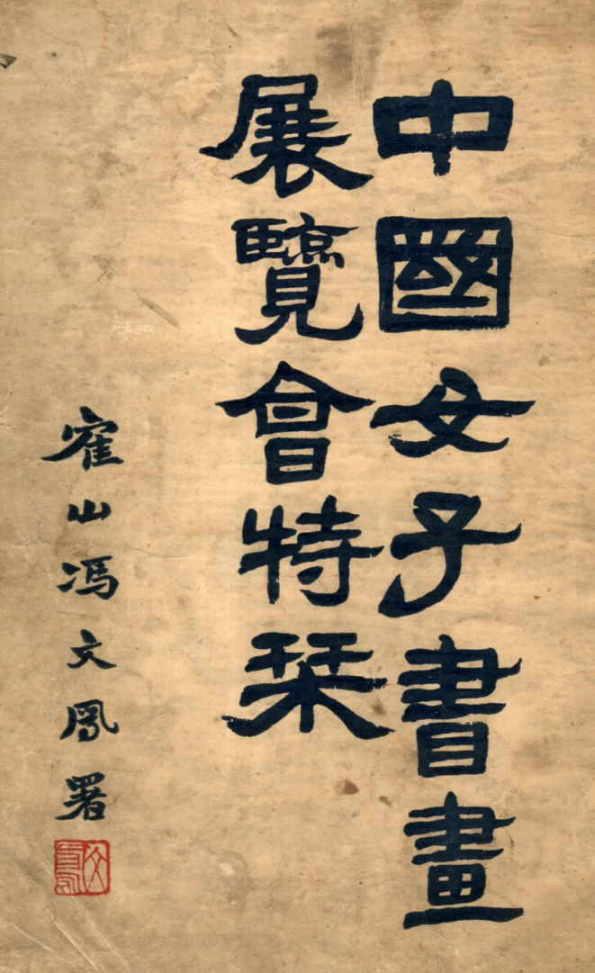 中國女子書畫
展覽會特栞
寉山馮文鳳署